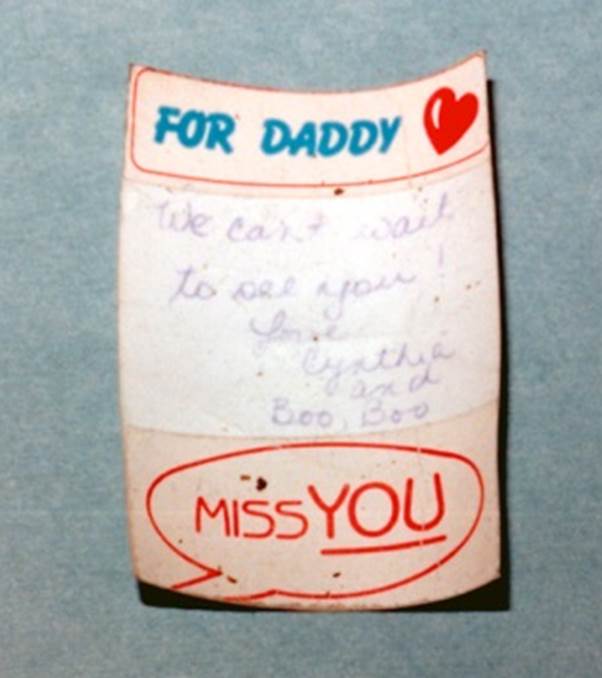 FOR DADDY
We can't wait
to see you!
Love
Cynthia
and
Boo Boo
MISS YOU